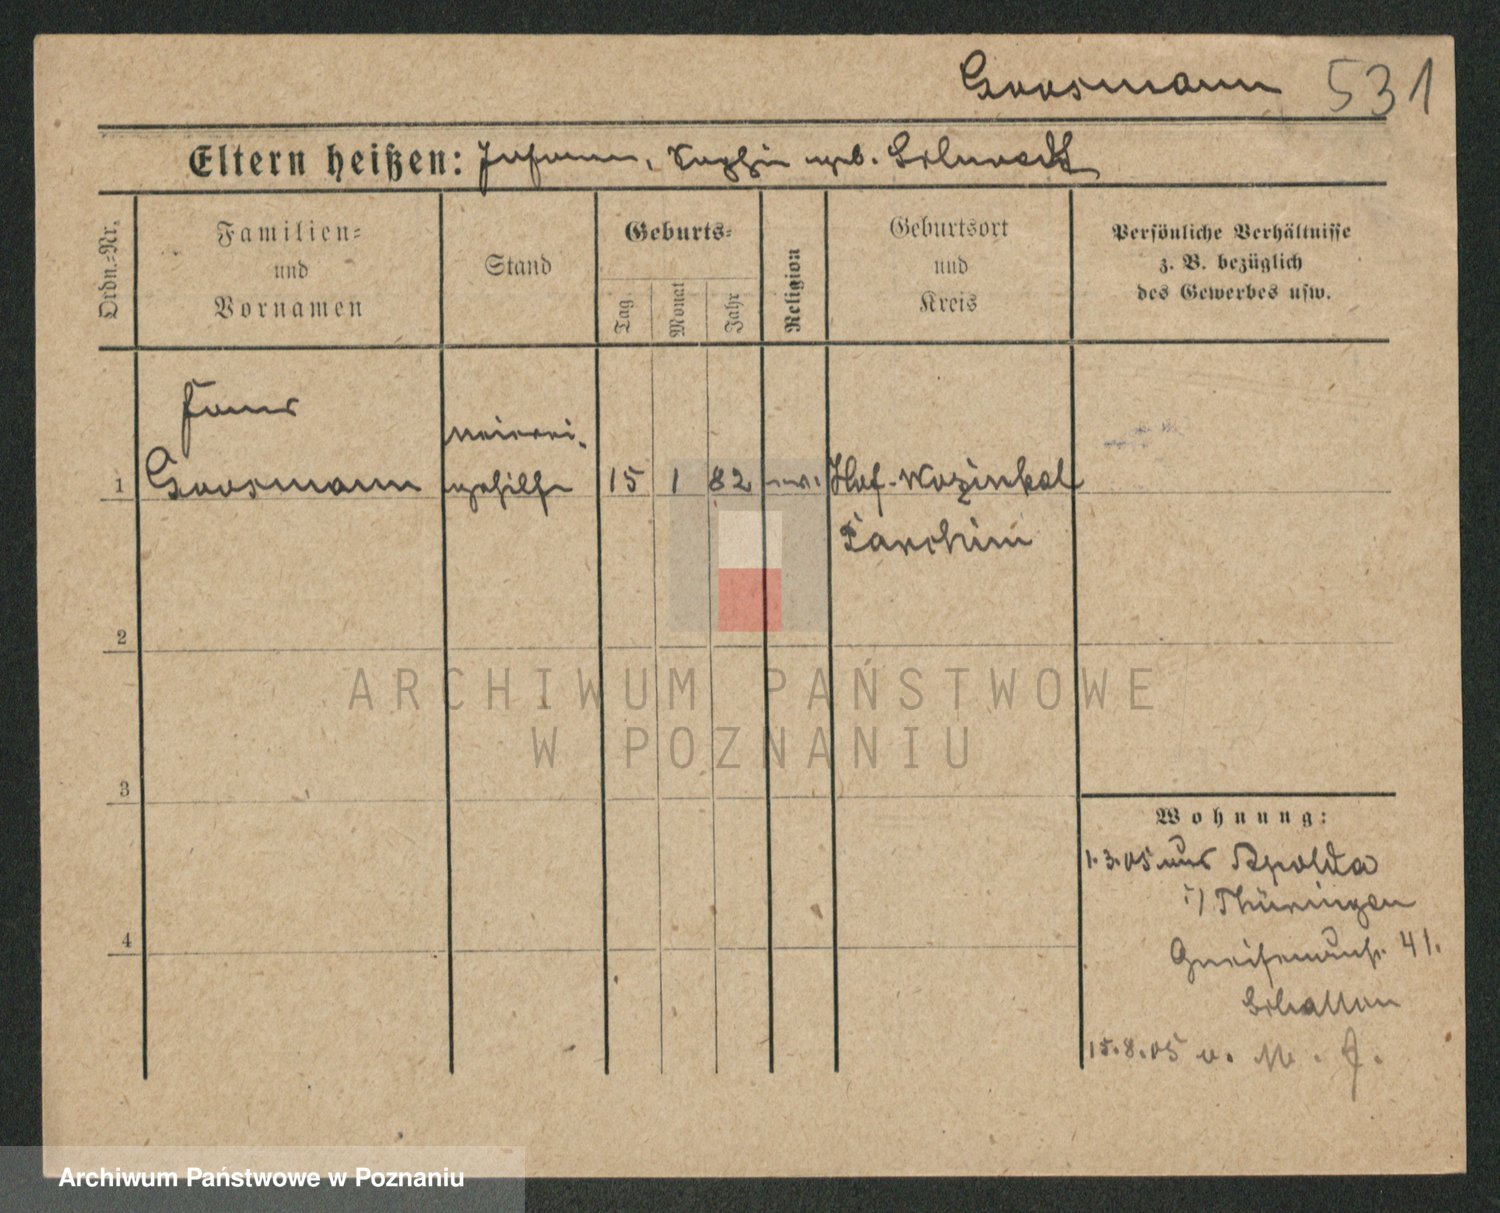 Goosmann 531
Eltern heißen: Johann, Sophie geb. Schwardt
Ordn.-Nr.
Familien-
und
Vornamen
Stand
Geburts-
Tag
Monat
Jahr
Religion
Geburtsort
und
Kreis
Persönliche Verhältnisse
z. B. bezüglich
des Gewerbes usw.
Hans
Meierei-
1 Goosmann gehilfe 15 1 82 ev. Hof-
Parchim
2
3
4
Wohnung:
1.3.05 aus Apolda
i/Thüringen
Gneisenaustr. 41.
15.8.05 v. M. J.
ARCHIWUM PAŃSTWOWE
W POZNANIU
Archiwum Państwowe w Poznaniu